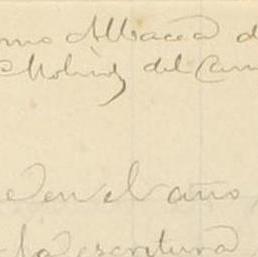 omo Albacea d
Molin del Cam
en el año,
la escritura